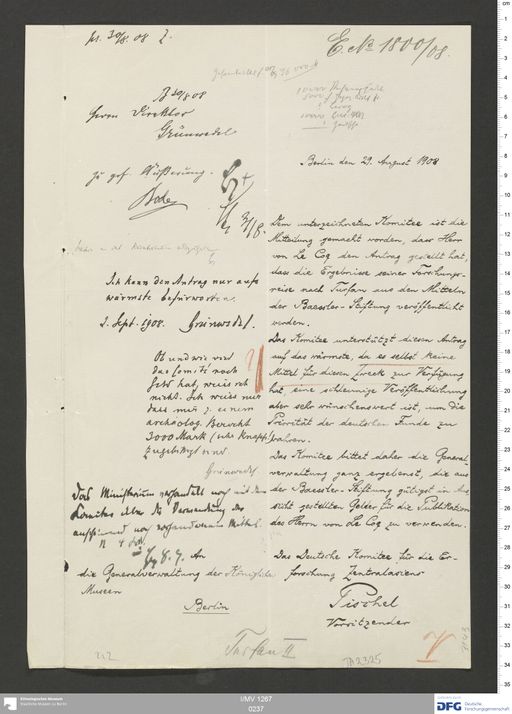 pr. 30/8. 08 Z.
E. No 1800/08.
B 30/8 08
Herrn Direktor
Grünwedel
zu gef. Äußerung.
Bode
Berlin den 29. August 1908
Dem unterzeichneten Komitee ist die
Mitteilung gemacht worden, dass Herr
von Le Coq den Antrag gestellt hat,
dass die Ergebnisse seiner Forschungs-
reise nach Turfan aus den Mitteln
der Baessler-Stiftung veröffentlicht
werden.
Das Komitee unterstützt diesen Antrag
auf das wärmste, da es selbst keine
Mittel für diesen Zweck zur Verfügung
hat, eine schleunige Veröffentlichung
aber sehr wünschenswert ist, um die
Priorität der deutschen Funde zu
wahren.
Das Komitee bittet daher die General-
verwaltung ganz ergebenst, die aus
der Baessler-Stiftung gütigst in Aus
sicht gestellten Gelder für die Publikation
des Herrn von Le Coq zu verwenden.
Das Deutsche Komitee für die Er-
forschung Zentralasiens
Pischel
Vorsitzender
Ich kann den Antrag nur aufs
wärmste befürworten.
2. Sept. 1908. Grünwedel.
Ob und wie viel
das Comité noch
Geld hat, weiss ich
nicht. Ich weiss nur
dass mir z. einem
archäolog. Bericht
3000 Mark (sehr knapp!)
zugebilligt sind
Grünwedel.
Das Ministerium verhandelt noch mit dem
Komitee über die Verwendung der
noch vorhandenen Mittel.
An
die Generalverwaltung der Königlichen
Museen
Berlin
Turfan II
TA 2325
Ethnologisches Museum
Staatliche Museen zu Berlin
I/MV 1267
0237
DFG Deutsche
Forschungsgemeinschaft